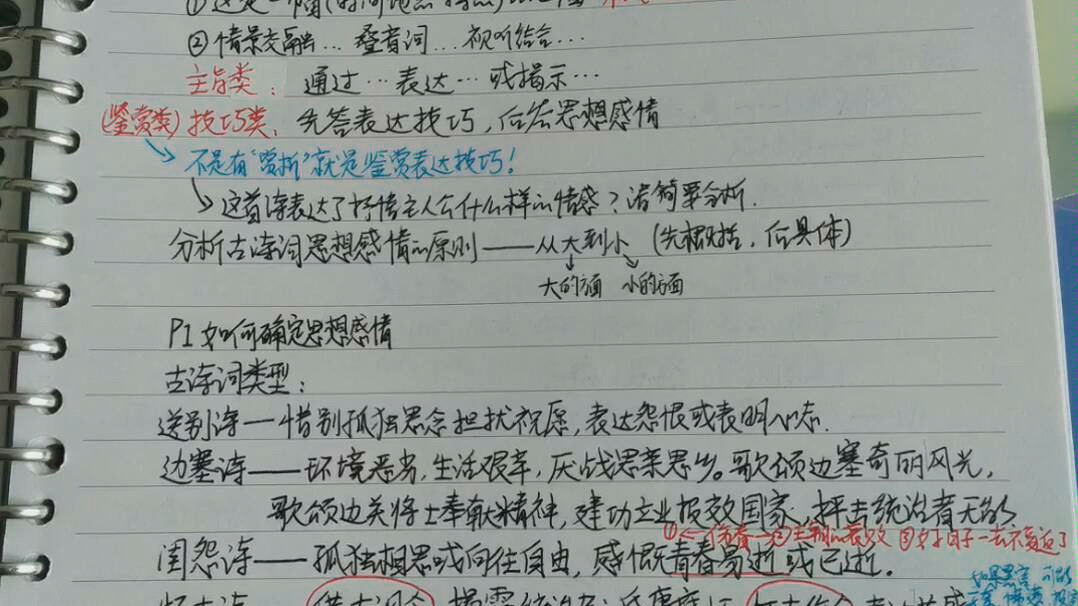 ②情景交融…叠音词…视听结合…
主旨类：通过…表达…或揭示…
(鉴赏类)技巧类：先答表达技巧，后答思想感情
不是有"赏析"就是鉴赏表达技巧！
这首诗表达了抒情主人公什么样的情感？请简要分析.
分析古诗词思想感情的原则——从大到小（先概括，后具体）
大的方面 小的方面
P1 如何确定思想感情
古诗词类型：
送别诗—惜别孤独思念担扰祝愿，表达怨恨或表明心志.
边塞诗——环境恶劣，生活艰辛，厌战思亲思乡。歌颂边塞奇丽风光，
歌颂边关将士奉献精神，建功立业报效国家，抨击统治者无能
闺怨诗——孤独相思或向往自由，感慨青春易逝或已逝。